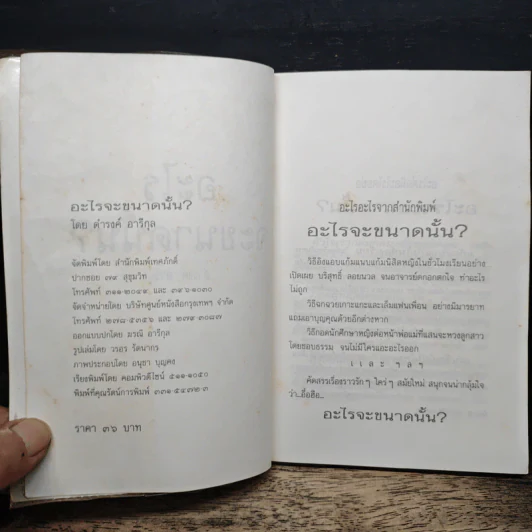 อะไรจะขนาดนั้น?
โดย ดำรงค์ อารีกุล
จัดพิมพ์โดย สำนักพิมพ์เทคภักดิ์
ปากซอย ๗๙ สุขุมวิท
โทรศัพท์ ๓๑๑-๒๐๕๙ และ ๓๙๖-๑๐๓๐
จัดจำหน่ายโดย บริษัทศูนย์หนังสือกรุงเทพฯ จำกัด
โทรศัพท์ ๒๗๘-๕๓๕๖ และ ๒๗๙-๓๐๘๗
ออกแบบปกโดย มรณี อารีกุล
รูปเล่มโดย วรอร รัตนากร
ภาพประกอบโดย อนุชา บุญคง
เรียงพิมพ์โดย คอมพิวดีไซน์ ๕๑๑-๑๐๕๐
พิมพ์ที่คุณรัตน์การพิมพ์ ๓๓๑-๕๔๗๒-๓
ราคา ๓๖ บาท
อะไรอะไรจากสำนักพิมพ์
อะไรจะขนาดนั้น?
วิธีอิงแอบแก้มแนบแก้มนิสิตหญิงในชั่วโมงเรียนอย่าง
เปิดเผย บริสุทธิ์ ลอยนวล จนอาจารย์ตกอกตกใจ ทำอะไร
ไม่ถูก
วิธีฉกฉวยเกาะแกะและเล็มแฟนเพื่อน อย่างมีมารยาท
แถมเอาบุญคุณด้วยอีกต่างหาก
วิธีกอดนักศึกษาหญิงต่อหน้าพ่อแม่ที่แสนจะหวงลูกสาว
โดยชอบธรรม จนไม่มีใครแอะอะไรออก
และ ฯลฯ
คัดสรรเรื่องราวรัก ๆ ใคร่ ๆ สมัยใหม่ สนุกจนน่ากลุ้มใจ
ว่า...อื้อฮือ...
อะไรจะขนาดนั้น?